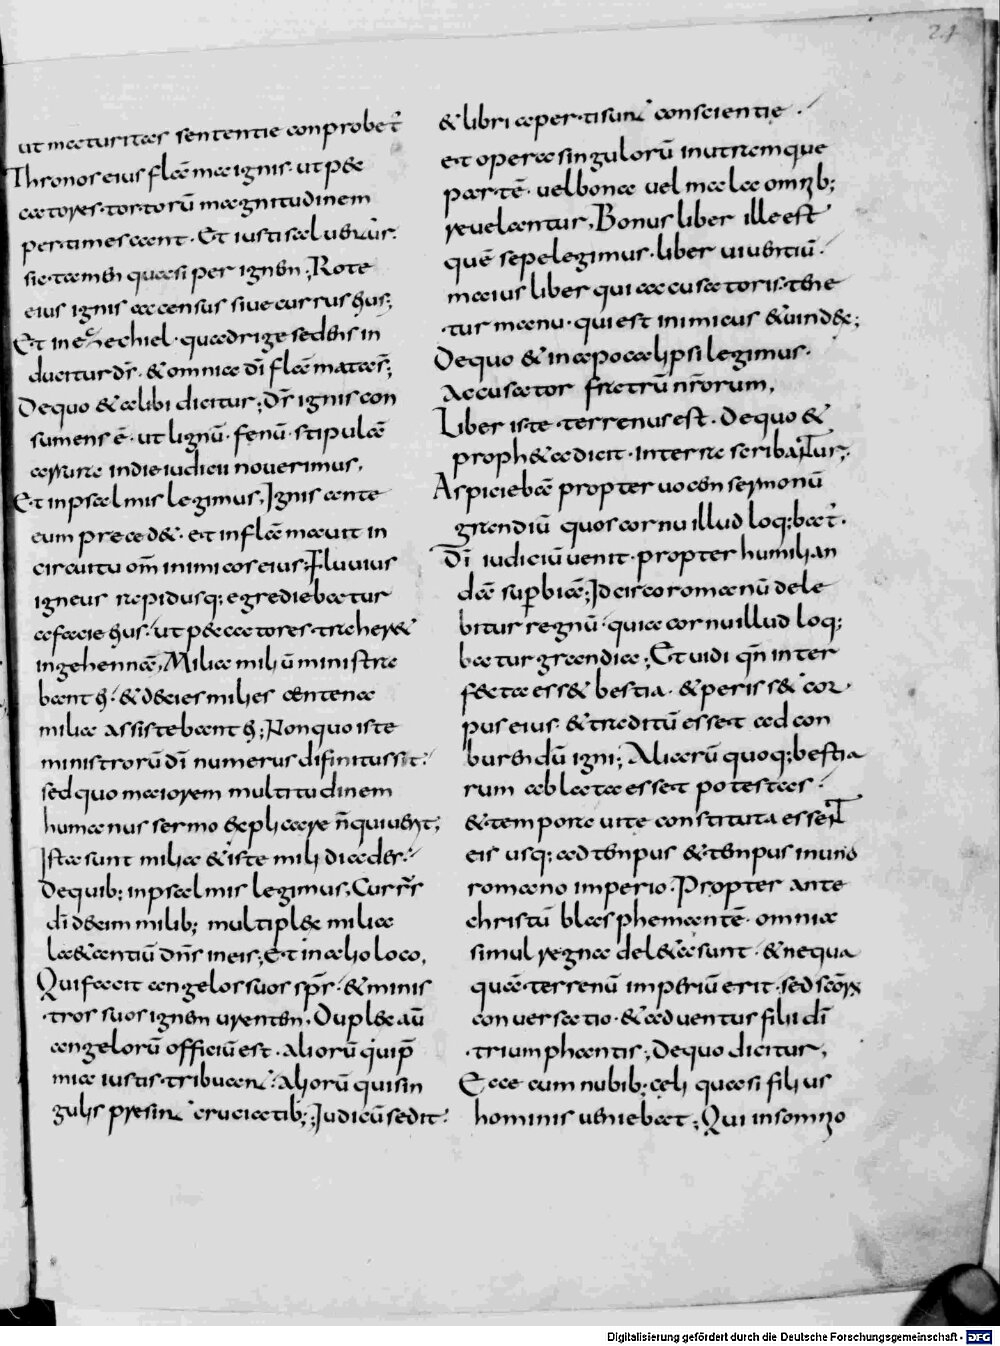 24
ut maturitas sententie conprobet᷑
Thronos eius flāma ignis· ut p&
catores· tortorū magnitudinem
pertimescant· Et iusti saluent᷑ur·
sic tamen quasi per ignem; Rote
eius ignis accensus siue currus eius;
Et in ezechiel· quadrige sedens in
ducitur dr̄· & omnia dī flāmatas;
De quo & alibi dicitur; Dr̄ ignis con
sumens ē· ut lignū· fenū· stipulā
in die iudicii nouerimus,
Et in psalmis legimus, Ignis ante
eum preced&· et inflāmauit in
circuitu om̄ inimicos eius; Fluuius
igneus rapidusq; egrediebatur
a facie eius· ut peccatores traher&
in gehennā, Milia miliū ministra
bant ei· & decies milies centena
milia assistebant ei; Non quo iste
ministrorū dī numerus difinitus sit·
sed quo maiorem multitudinem
humanus sermo explicare n̄ quiuerit;
Ista sunt milia & iste miliadi
De quib; in psalmis legimus, Curr᷑s
dī decim milib; multiplex milia
l&antiū dn̄s in eis; Et in alio loco,
Qui facit angelos suos spr̄· & minis
tros suos ignem urentem, Duplex aū
angelorū officiū est· aliorū qui p̄
mia iustis tribuant· Aliorū qui sin
gulis presint cruciatib;; Iudiciū sedit·
& libri aperti sunt· conscientie·
et opera singulorū in utramque
partē· uel bona uel mala omnib;
reuelantur, Bonus liber ille est
quē sepe legimus· liber uiuentiū·
malus liber qui accusatoris tene
tur manu· qui est inimicus & uindex;
De quo & in apocalipsi legimus·
Accusator fratrū nr̄orum,
Liber iste terrenus est· De quo &
proph&a dicit· in terra scribantur;
Aspiciebā propter uocem sermonū
grandiū quos cornu illud loq;bat᷑·
Dī iudiciū uenit· propter humilian
dā sup̱biā; Idcirco romanū dele
bitur regnū· quia cornu illud loq;
batur grandia; Et uidi qm̄ inter
fecta ess& bestia· & periss& cor
pus eius· & traditū esset ad con
burendū igni; Aliarū quoq; bestia
rum ablata esset potestas·
& tempora uite constituta essent
eis usq; ad tempus & tempus in uno
romano imperio· Propter ante
christū blasphemantē· omnia
simul regna del&a sunt· & nequa
quā terrenū imperiū erit· sed scōrum
conuersatio· & aduentus filii dī
triumphantis; De quo dicitur,
Ecce cum nubib; celi quasi filius
hominis ueniebat; Qui in somnio
Digitalisierung gefördert durch die Deutsche Forschungsgemeinschaft - DFG